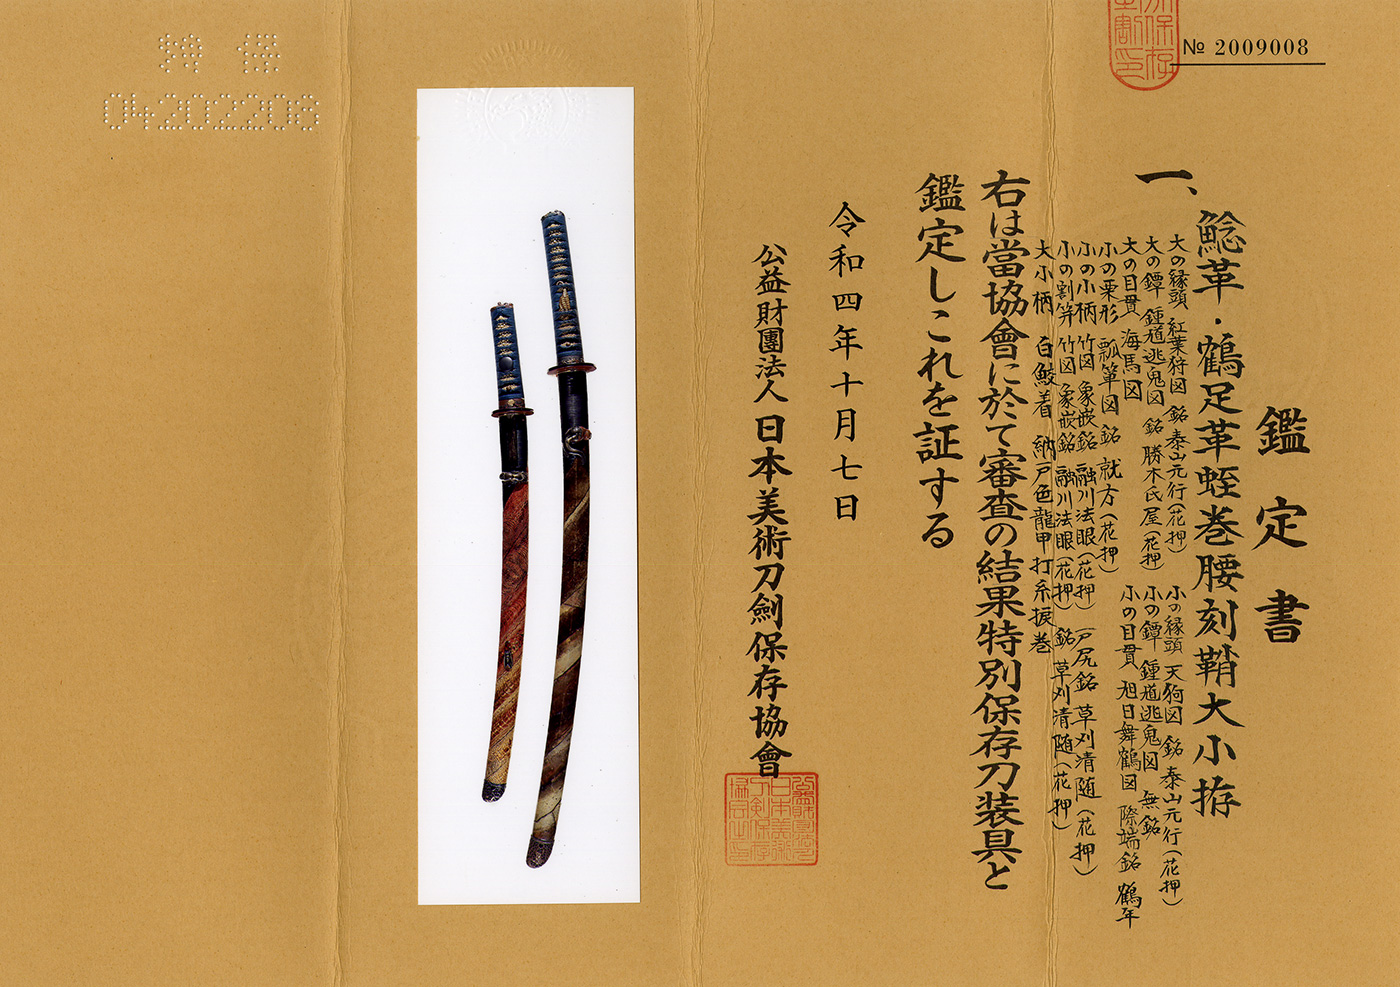 № 2009008
鑑定書
一、鯰革・鶴足革蛭巻腰刻鞘大小拵
大の縁頭 紅葉狩図 銘 泰山元行(花押)
小の縁頭 天狗図 銘 泰山元行(花押)
大の鐔 鍾馗逃鬼図 銘 勝木氏屋(花押)
小の鐔 鍾馗逃鬼図 無銘
大の目貫 海馬図
小の目貫 旭日舞鶴図 際端銘 鶴年
小の栗形 瓢箪図 銘 就方(花押)
小の小柄 竹図 象嵌銘 融川法眼(花押) 戸尻銘 草刈清随(花押)
小の割笄 竹図 象嵌銘 融川法眼(花押) 銘 草刈清随(花押)
大小柄 白鮫着 納戸色龍甲打糸捩巻
右は當協會に於て審査の結果特別保存刀装具と
鑑定しこれを証する
令和四年十月七日
公益財團法人 日本美術刀劍保存協會
04202208